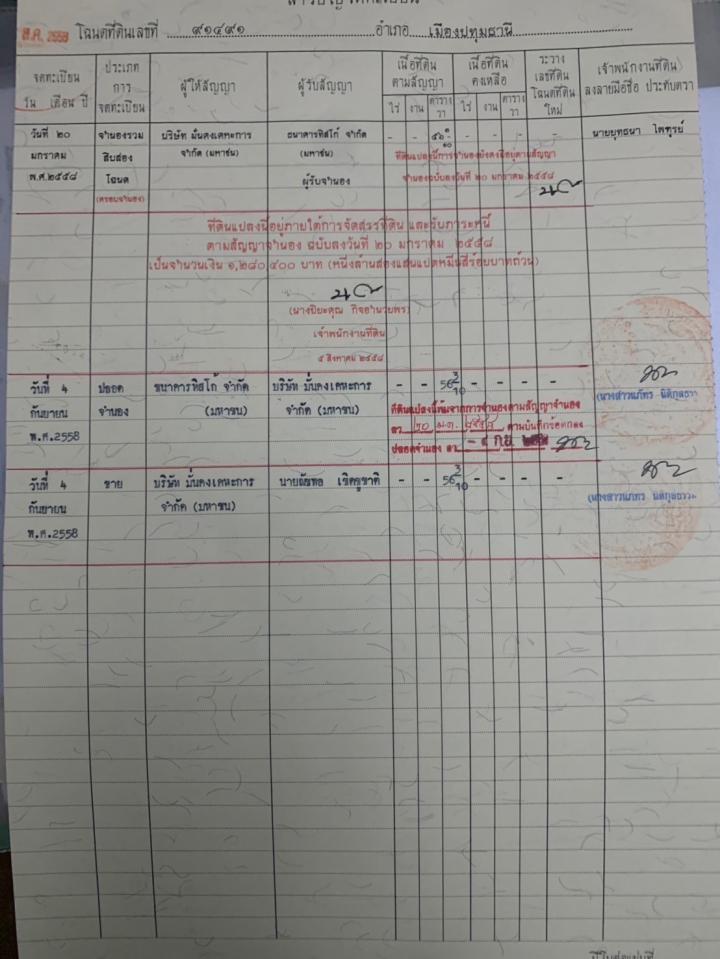 ส.ค. 2558 โฉนดที่ดินเลขที่ ๙๑๔๙๑ อำเภอ เมืองปทุมธานี
จดทะเบียน
วัน เดือน ปี
ประเภท
การ
จดทะเบียน
ผู้ให้สัญญา
ผู้รับสัญญา
เนื้อที่ดิน
ตามสัญญา
ไร่ งาน ตาราง
วา
เนื้อที่ดิน
คงเหลือ
ไร่ งาน ตาราง
วา
ระวาง
เลขที่ดิน
โฉนดที่ดิน
ใหม่
เจ้าพนักงานที่ดิน
ลงลายมือชื่อ ประทับตรา
วันที่ ๒๐ จำนองรวม บริษัท มั่นคงเคหะการ ธนาคารทิสโก้ จำกัด - - - - - - นายยุทธนา ไพฑูรย์
มกราคม สิบสอง จำกัด (มหาชน) (มหาชน) ที่ดินแปลงนี้การจำนองยังคงมีอยู่ตามสัญญา
พ.ศ.๒๕๕๘ โฉนด ผู้รับจำนอง จำนองฉบับลงวันที่ ๒๐ มกราคม ๒๕๕๘
(ครอบจำนอง)
ที่ดินแปลงนี้อยู่ภายใต้การจัดสรรที่ดิน และรับภาระหนี้
ตามสัญญาจำนอง ฉบับลงวันที่ ๒๐ มกราคม ๒๕๕๘
เป็นจำนวนเงิน ๑,๒๘๐,๔๐๐ บาท (หนึ่งล้านสองแสนแปดหมื่นสี่ร้อยบาทถ้วน)
(นางปิยะคุณ กิจอำนวยพร)
เจ้าพนักงานที่ดิน
๕ สิงหาคม ๒๕๕๘
วันที่ 4 ปลอด ธนาคารทิสโก้ จำกัด บริษัท มั่นคงเคหะการ - - 56 3/10 - - - -
กันยายน จำนอง (มหาชน) จำกัด (มหาชน) ที่ดินแปลงนี้พ้นจากการจำนองตามสัญญาจำนอง
พ.ศ.2558 ลว ๒๐ ม.ค. ๒๕๕๘ ตามบันทึกข้อตกลง
ปลอดจำนอง ลว - ๔ ก.ย.
วันที่ 4 ขาย บริษัท มั่นคงเคหะการ - - 56 3/10 - - - -
กันยายน จำกัด (มหาชน)
พ.ศ.2558